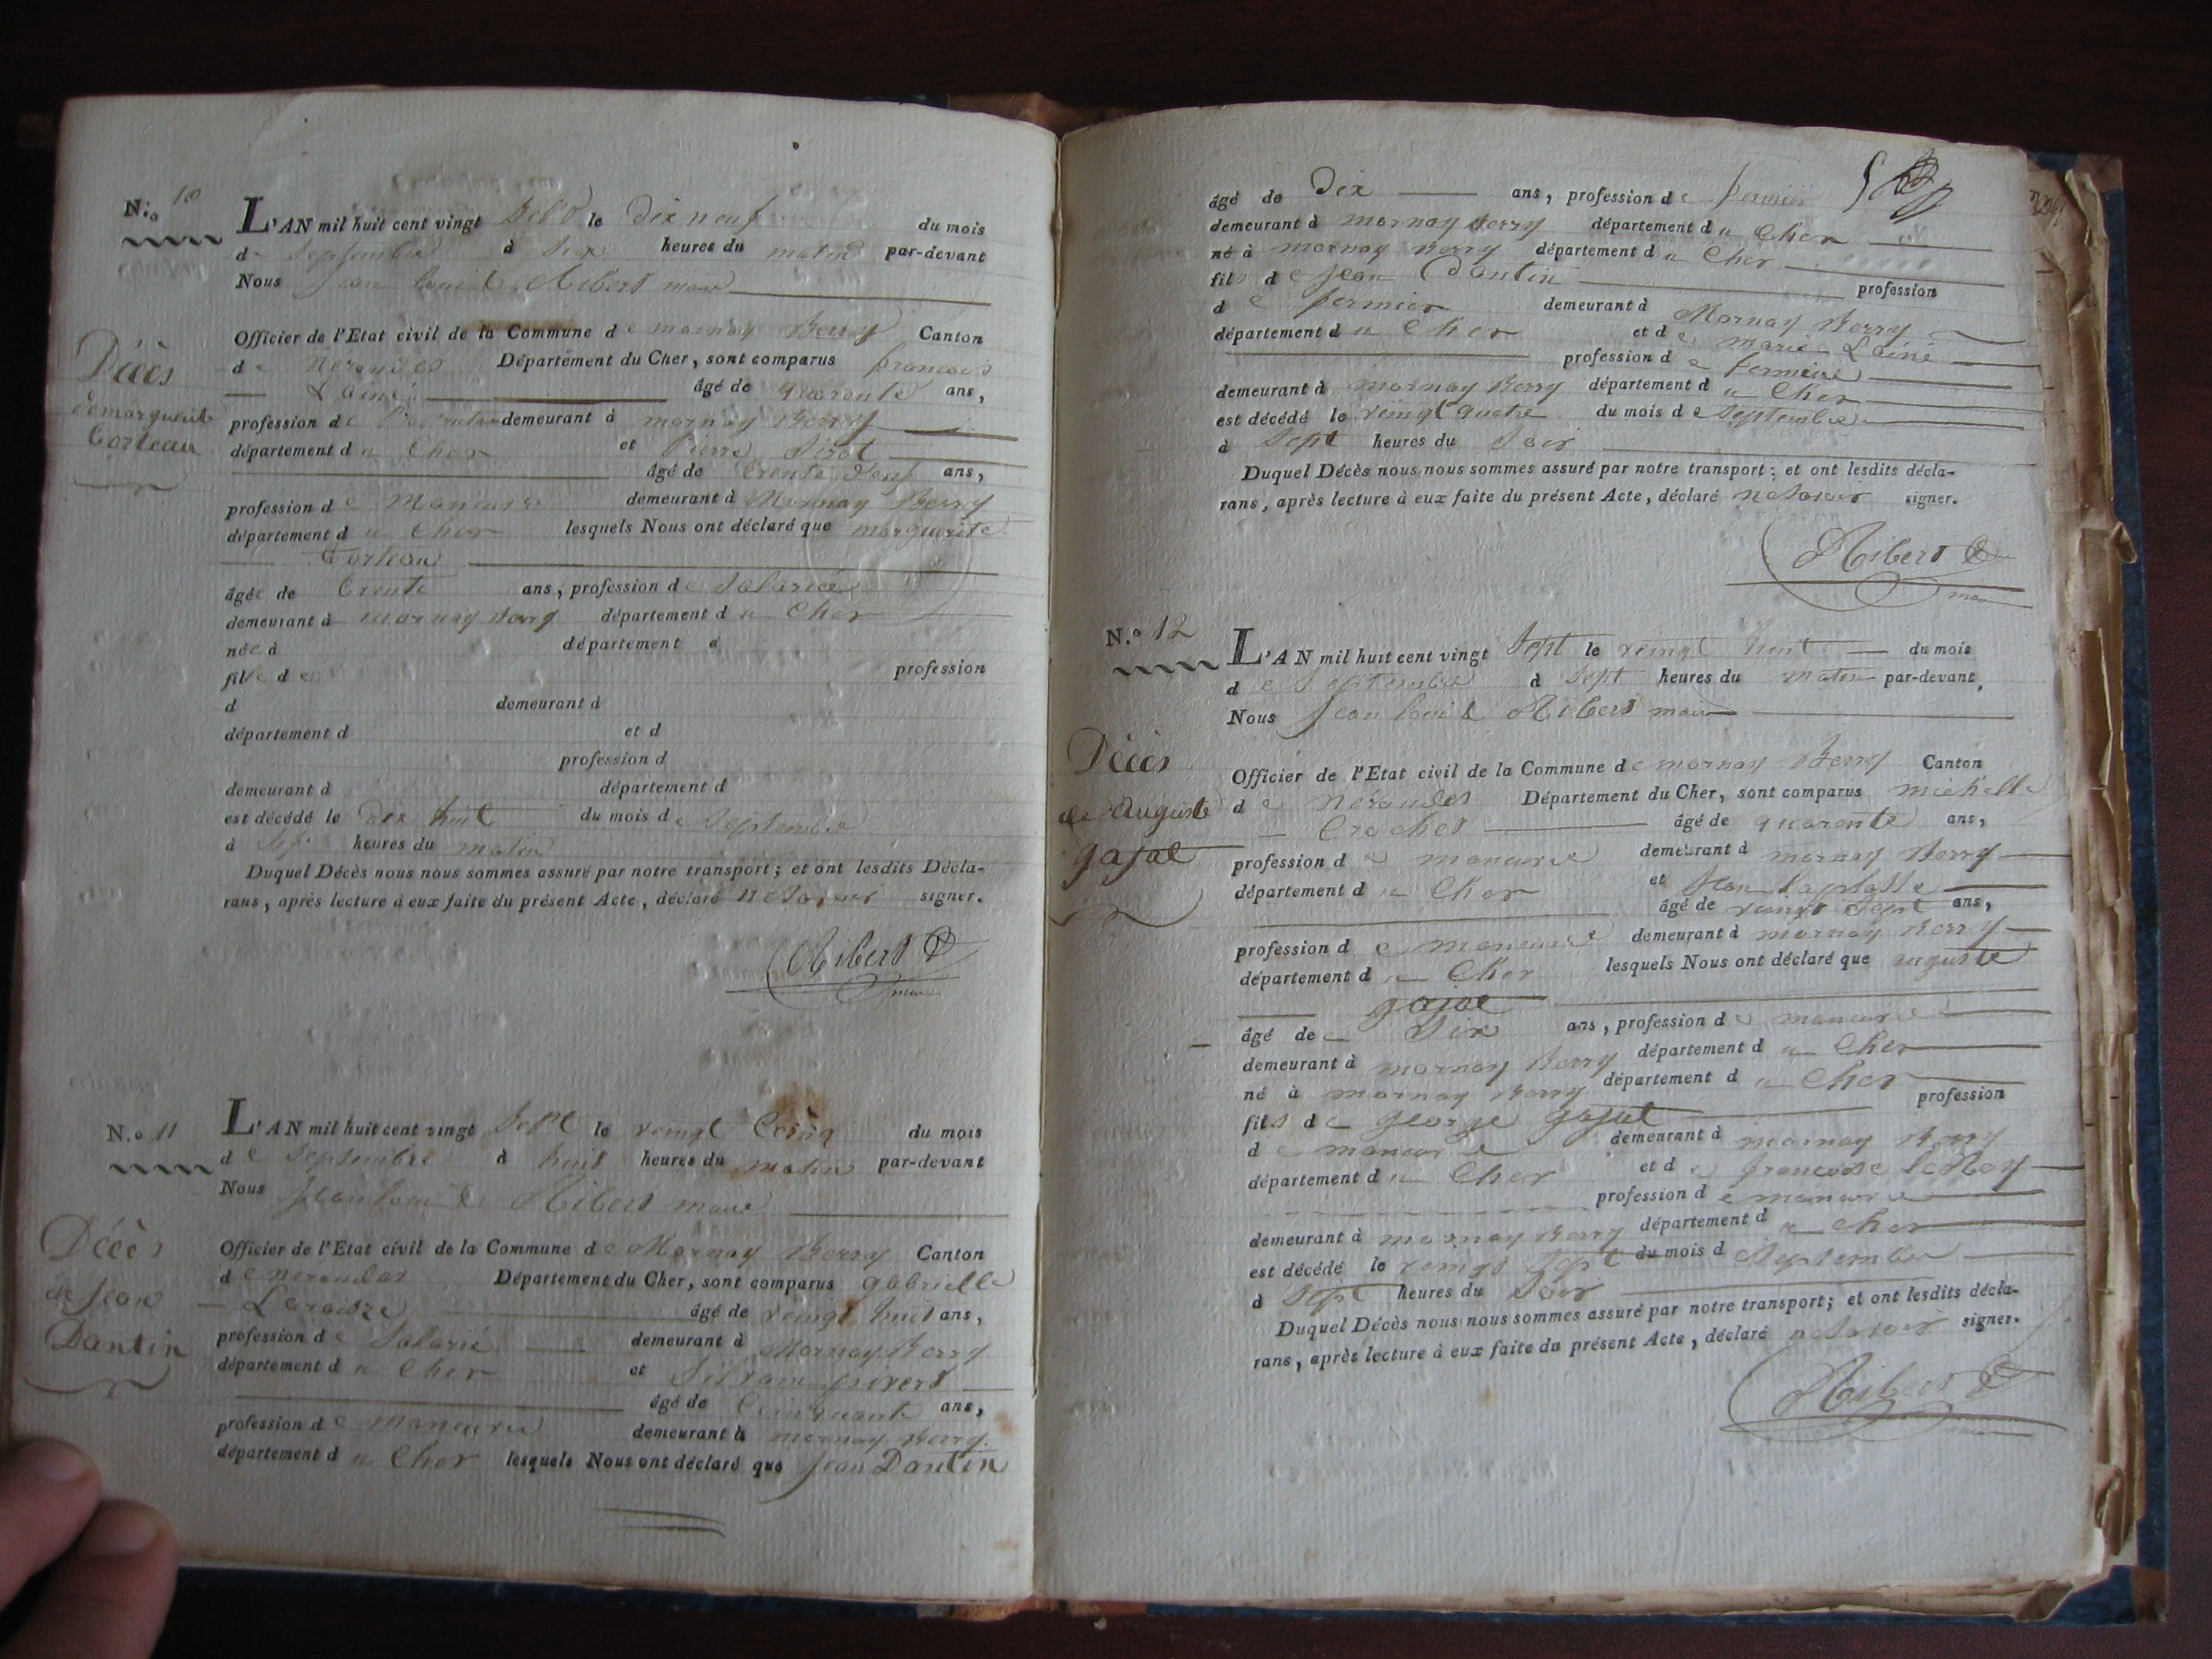 N.o 10
L'AN mil huit cent vingt Sept le Dix neuf du mois
de Septembre à Six heures du matin par-devant
Nous Jean Louis Ribert maire
Officier de l'Etat civil de la Commune de mornay Berry Canton
de Nerondes Département du Cher, sont comparus francois
Lainé âgé de quarente ans,
profession de demeurant à mornay Berry
département du Cher et Pierre
âgé de trente ans,
profession de Maneuvre demeurant à Mornay Berry
département du Cher lesquels Nous ont déclaré que marguerite
Torteau
âgée de trente ans, profession de Salariée
demeurant à mornay Berry département du Cher
née à département d
fille de profession
d demeurant à
département d et d
profession d
demeurant à département d
est décédé le dix huit du mois de Septembre
à heures du matin
Duquel Décès nous nous sommes assuré par notre transport; et ont lesdits Décla-
rans, après lecture à eux faite du présent Acte, déclaré ne Savoir signer.
Ribert
maire
Décès
de marguerite
Torteau
N.o 11
L'AN mil huit cent vingt Sept le vingt Cinq du mois
de Septembre à huit heures du matin par-devant
Nous Jean Louis Ribert maire
Officier de l'Etat civil de la Commune de Mornay Berry Canton
de nerondes Département du Cher, sont comparus gabrielle
âgé de vingt huit ans,
profession de Salarié demeurant à Mornay Berry
département du Cher et Silvain pivert
âgé de Cinquante ans,
profession de maneuvre demeurant à mornay Berry
département du Cher lesquels Nous ont déclaré que Jean Dantin
Décès
de Jean
Dantin
âgé de Dix ans, profession de fermier
demeurant à mornay Berry département du Cher
né à mornay Berry département du Cher
fils de Jean Dantin profession
de fermier demeurant à Mornay Berry
département du Cher et de marie Lainé
profession de fermiere
demeurant à mornay Berry département du Cher
est décédé le vingt quatre du mois de Septembre
à Sept heures du Soir
Duquel Décès nous nous sommes assuré par notre transport; et ont lesdits décla-
rans, après lecture à eux faite du présent Acte, déclaré ne Savoir signer.
Ribert
maire
N.o 12
L'AN mil huit cent vingt Sept le vingt huit du mois
de Septembre à Sept heures du matin par-devant
Nous Jean Louis Ribert maire
Officier de l'Etat civil de la Commune de mornay Berry Canton
de nerondes Département du Cher, sont comparus michelle
Crochet âgé de quarente ans,
profession de maneuvre demeurant à mornay Berry
département du Cher et Jean Laplasse
âgé de vingt Sept ans,
profession de maneuvre demeurant à mornay Berry
département du Cher lesquels Nous ont déclaré que auguste
gajat
âgé de Dix ans, profession de maneuvre
demeurant à mornay Berry département du Cher
né à mornay Berry département du Cher
fils de george gajat profession
de maneuvre demeurant à mornay Berry
département du Cher et de francoise le Roy
profession de maneuvre
demeurant à mornay Berry département du Cher
est décédé le vingt Sept du mois d Septembre
à Sept heures du Soir
Duquel Décès nous nous sommes assuré par notre transport; et ont lesdits décla-
rans, après lecture à eux faite du présent Acte, déclaré ne Savoir signer.
Ribert
maire
Décès
de auguste
gajat